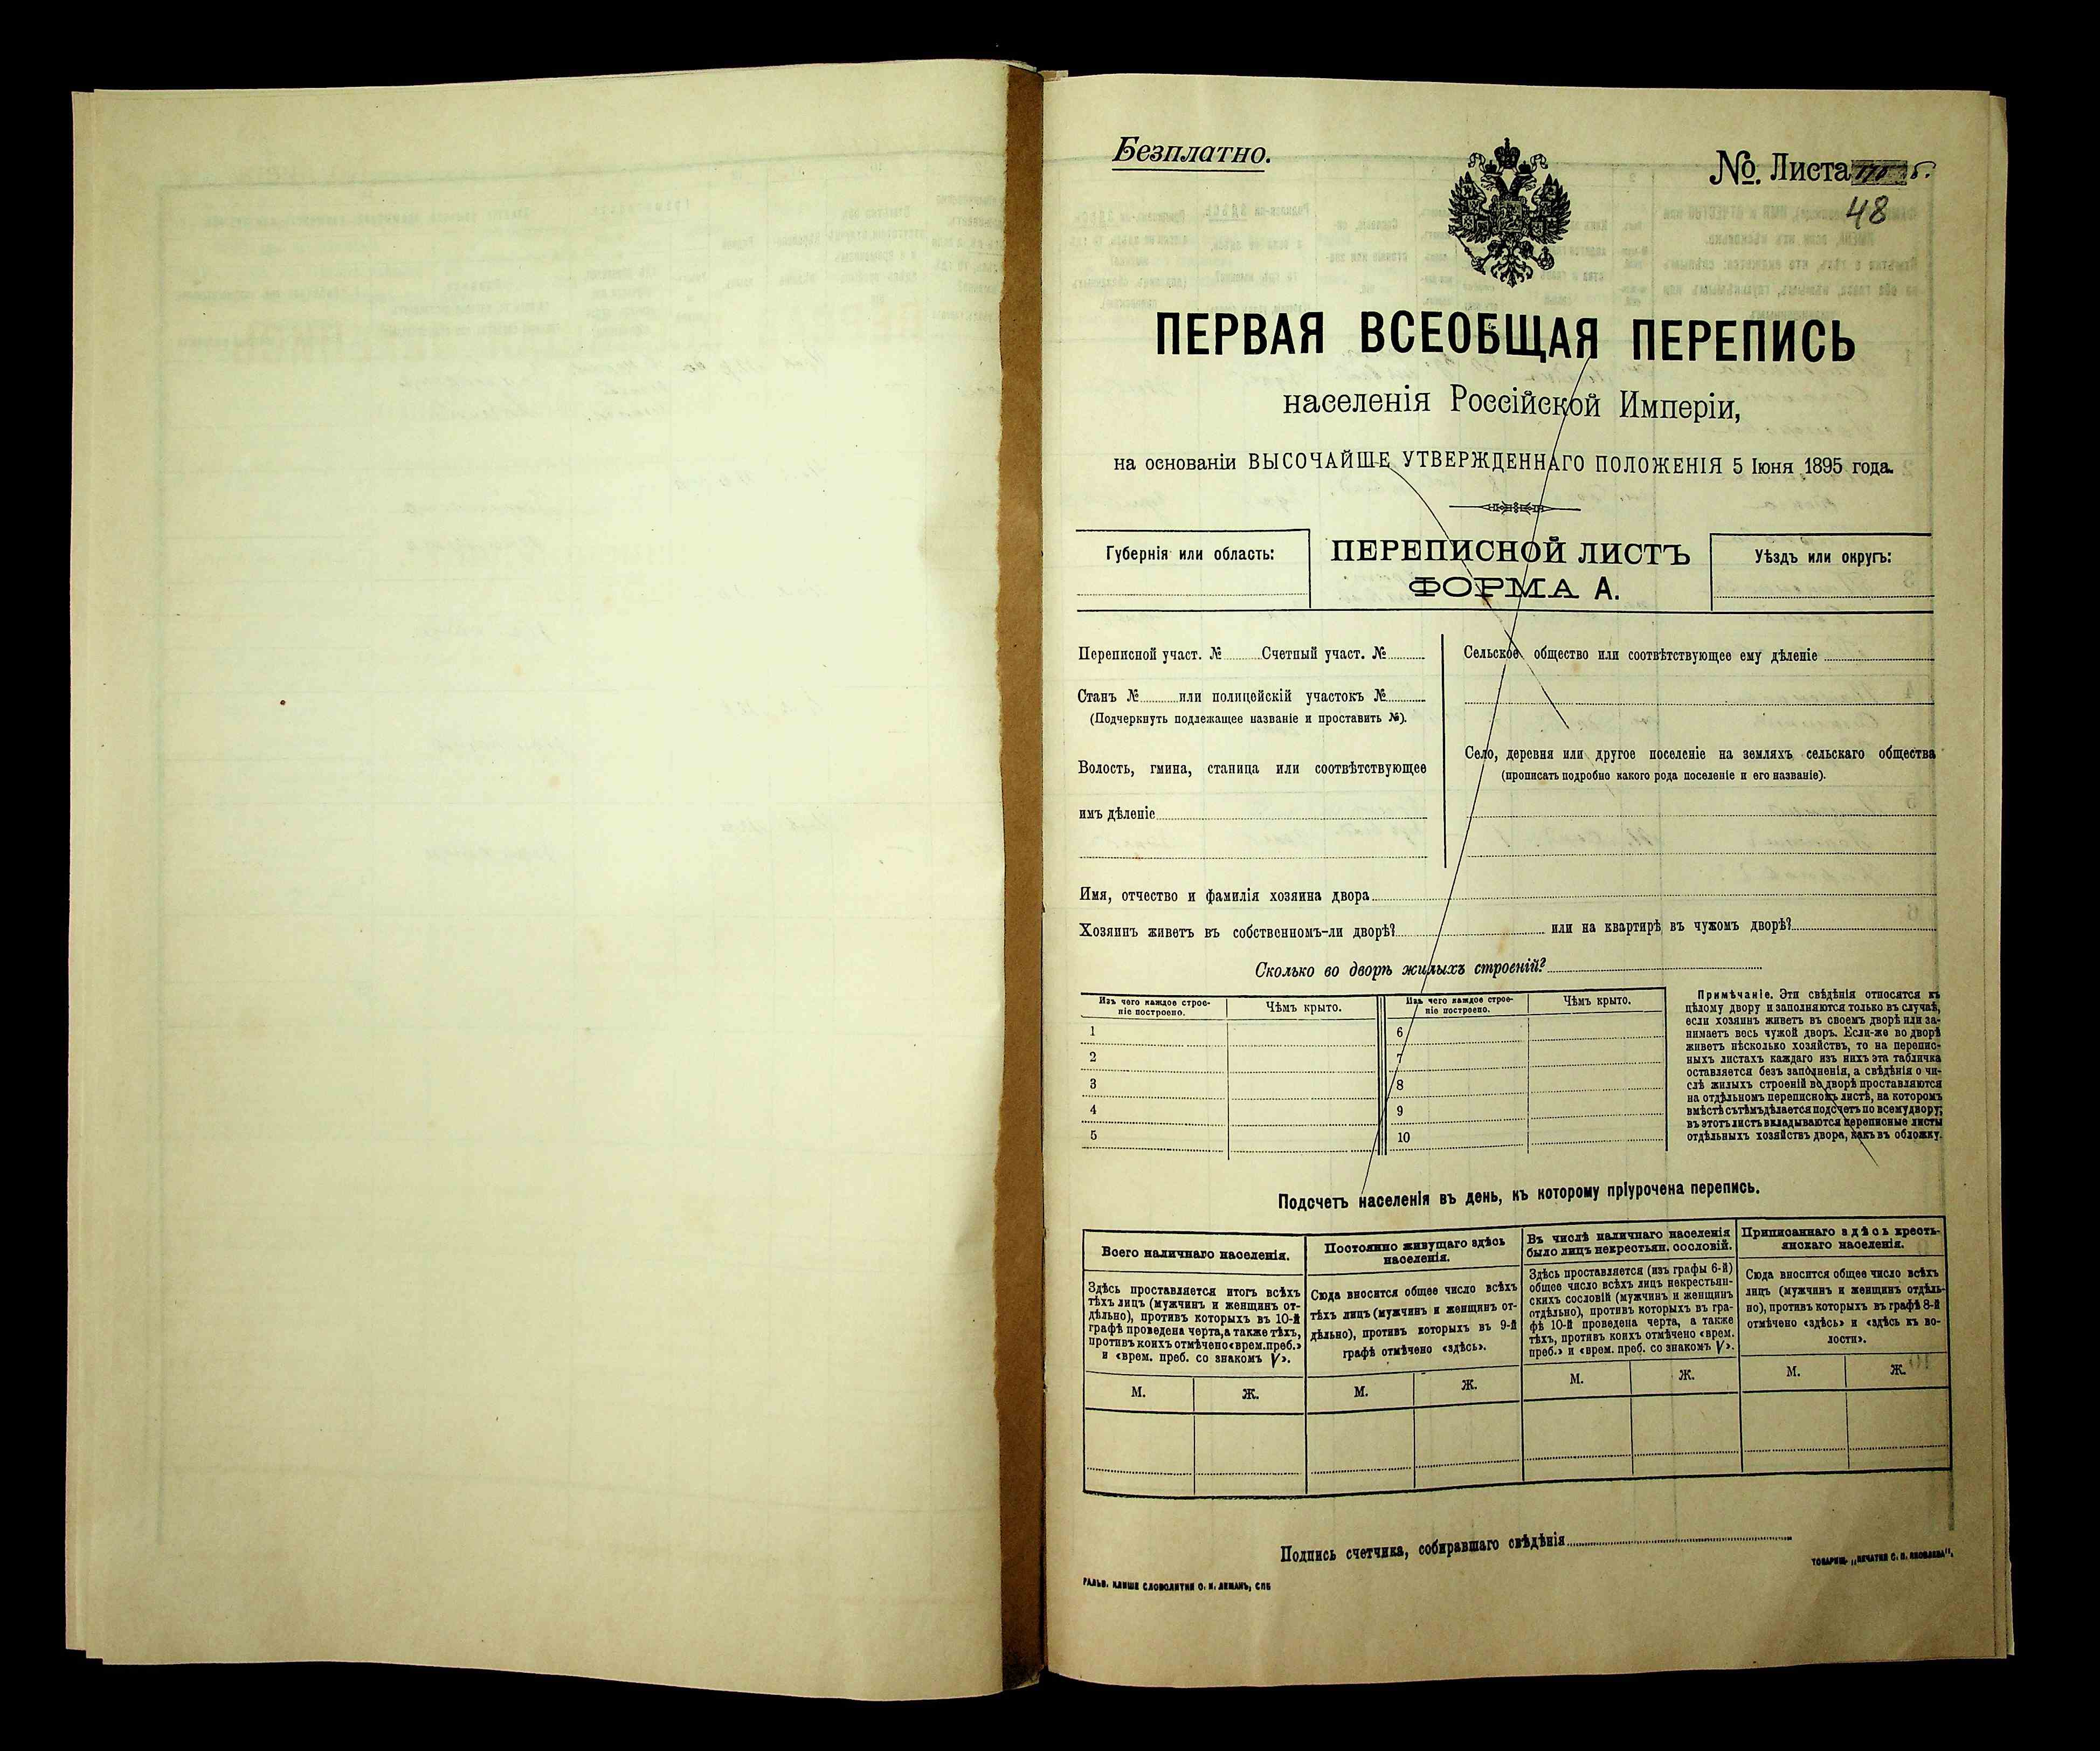 Безплатно.
№. Листа
48
ПЕРВАЯ ВСЕОБЩАЯ ПЕРЕПИСЬ
населенія Россійской Имперіи,
на основаніи ВЫСОЧАЙШЕ УТВЕРЖДЕННАГО ПОЛОЖЕНІЯ 5 Іюня 1895 года.
Губернія или область:
ПЕРЕПИСНОЙ ЛИСТЪ
ФОРМА А.
Уѣздъ или округъ:
Переписной участ. № Счетный участ. №
Станъ № или полицейскій участокъ №
(Подчеркнуть подлежащее названіе и проставить №).
Волость, гмина, станица или соотвѣтствующее
имъ дѣленіе
Сельское общество или соотвѣтствующее ему дѣленіе
Село, деревня или другое поселеніе на земляхъ сельскаго общества
(прописать подробно какого рода поселеніе и его названіе).
Имя, отчество и фамилія хозяина двора
Хозяинъ живетъ въ собственномъ-ли дворѣ? или на квартирѣ въ чужомъ дворѣ?
Сколько во дворѣ жилыхъ строеній?
Изъ чего каждое строе-
ніе построено.
Чѣмъ крыто.
1
2
3
4
5
Изъ чего каждое строе-
ніе построено.
Чѣмъ крыто.
6
7
8
9
10
Примѣчаніе. Эти свѣдѣнія относятся къ
цѣлому двору и заполняются только въ случаѣ,
если хозяинъ живетъ въ своемъ дворѣ или за-
нимаетъ весь чужой дворъ. Если-же во дворѣ
живетъ нѣсколько хозяйствъ, то на перепис-
ныхъ листахъ каждаго изъ нихъ эта табличка
оставляется безъ заполненія, а свѣдѣнія о чи-
слѣ жилыхъ строеній во дворѣ проставляются
на отдѣльномъ переписномъ листѣ, на которомъ
вмѣстѣ съ тѣмъ дѣлается подсчетъ по всему двору;
въ этотъ листъ вкладываются переписные листы
отдѣльныхъ хозяйствъ двора, какъ въ обложку.
Подсчетъ населенія въ день, къ которому пріурочена перепись.
Всего наличнаго населенія.
Здѣсь проставляется итогъ всѣхъ
тѣхъ лицъ (мужчинъ и женщинъ от-
дѣльно), противъ которыхъ въ 10-й
графѣ проведена черта, а также тѣхъ,
противъ коихъ отмѣчено «врем. преб.»
и «врем. преб. со знакомъ V».
М. Ж.
Постоянно живущаго здѣсь
населенія.
Сюда вносится общее число всѣхъ
тѣхъ лицъ (мужчинъ и женщинъ от-
дѣльно), противъ которыхъ въ 9-й
графѣ отмѣчено «здѣсь».
М. Ж.
Въ числѣ наличнаго населенія
было лицъ некрестьян. сословій.
Здѣсь проставляется (изъ графы 6-й)
общее число всѣхъ лицъ некрестьян-
скихъ сословій (мужчинъ и женщинъ
отдѣльно), противъ которыхъ въ гра-
фѣ 10-й проведена черта, а также
тѣхъ, противъ коихъ отмѣчено «врем.
преб.» и «врем. преб. со знакомъ V».
М. Ж.
Приписаннаго здѣсь кресть-
янскаго населенія.
Сюда вносится общее число всѣхъ
лицъ (мужчинъ и женщинъ отдѣль-
но), противъ которыхъ въ графѣ 8-й
отмѣчено «здѣсь» и «здѣсь къ во-
лости».
М. Ж.
Подпись счетчика, собиравшаго свѣдѣнія
ГАЛЬВ. КЛИШЕ СЛОВОЛИТНИ О. И. ЛЕМАНЪ, СПБ
ТОВАРИЩ. „ПЕЧАТНЯ С. П. ЯКОВЛЕВА“.